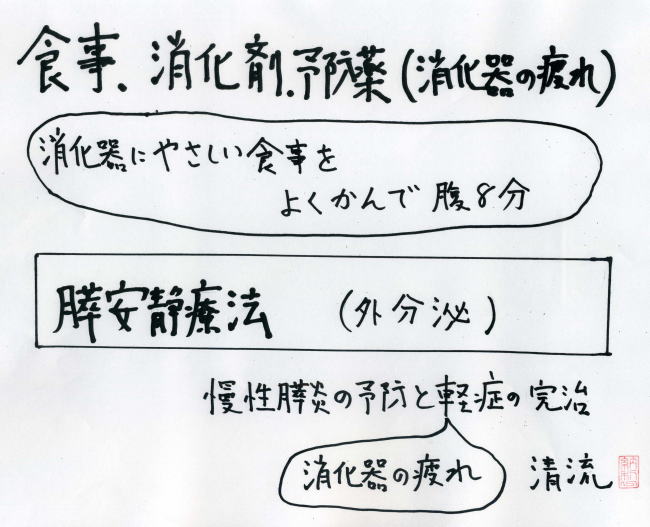 食事、消化剤.予防薬(消化器の疲れ)
消化器にやさしい食事を
よくかんで 腹8分
膵安静療法 (外分泌)
慢性膵炎の予防と軽症の完治
消化器の疲れ
清流